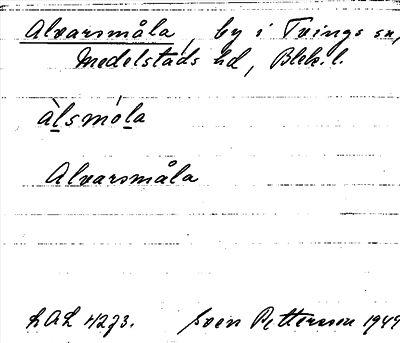 Alvarsmåla, by i Tvings sn,
Medelstads hd, Blek. l.
àlsmóla
Alvarsmåla
LAL 4273. Sven Pettersson 1944